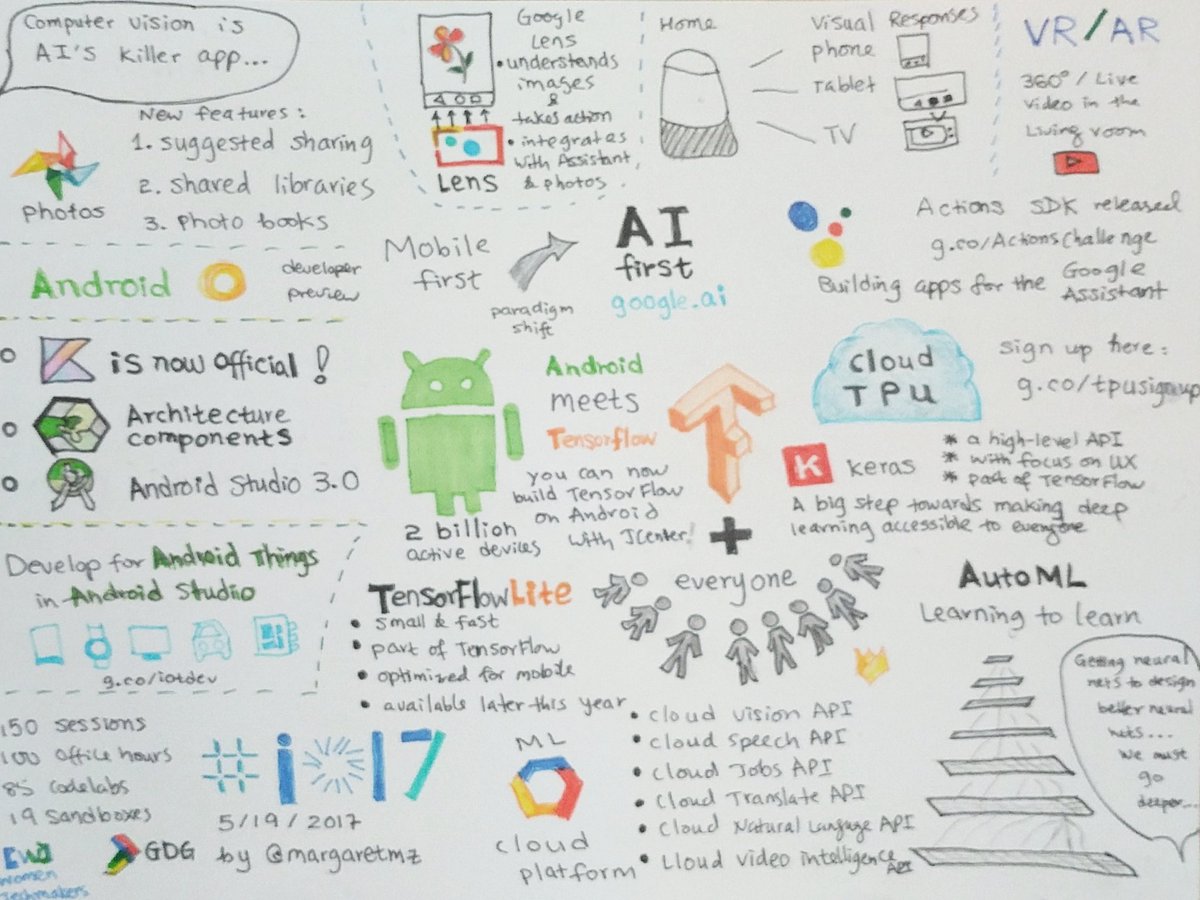 Computer vision is
AI's killer app...
New features:
1. suggested sharing
2. shared libraries
3. photo books
Photos
Google
Lens
• understands
images
&
takes action
• integrates
with Assistant,
& photos.
Lens
Home
Visual Responses
phone
Tablet
TV
VR/AR
360° / Live
video in the
Living room
Android
developer
preview
Mobile
first
paradigm
shift
AI
first
google.ai
Actions SDK released
g.co/ActionsChallenge
Building apps for the Google
Assistant
is now official!
Architecture
components
Android Studio 3.0
Android
meets
Tensorflow
you can now
build TensorFlow
on Android
with JCenter!
2 billion
active devices
Cloud
TPU
sign up here:
g.co/tpusignup
K
keras
* a high-level API
* with focus on UX
* part of TensorFlow
A big step towards making deep
learning accessible to everyone
Develop for Android Things
in Android Studio
g.co/iotdev
TensorFlowLite
• small & fast
• part of TensorFlow
• optimized for mobile
• available later this year
+
everyone
AutoML
Learning to learn
Getting neural
nets to design
better neural
nets...
We must
go
deeper...
150 sessions
100 office hours
85 codelabs
19 sandboxes
#io17
5/19/2017
by @margaretmz
GDG
Women
Techmakers
ML
cloud
platform
• Cloud Vision API
• Cloud Speech API
• Cloud Jobs API
• Cloud Translate API
• Cloud Natural Language API
• Cloud video intelligence API